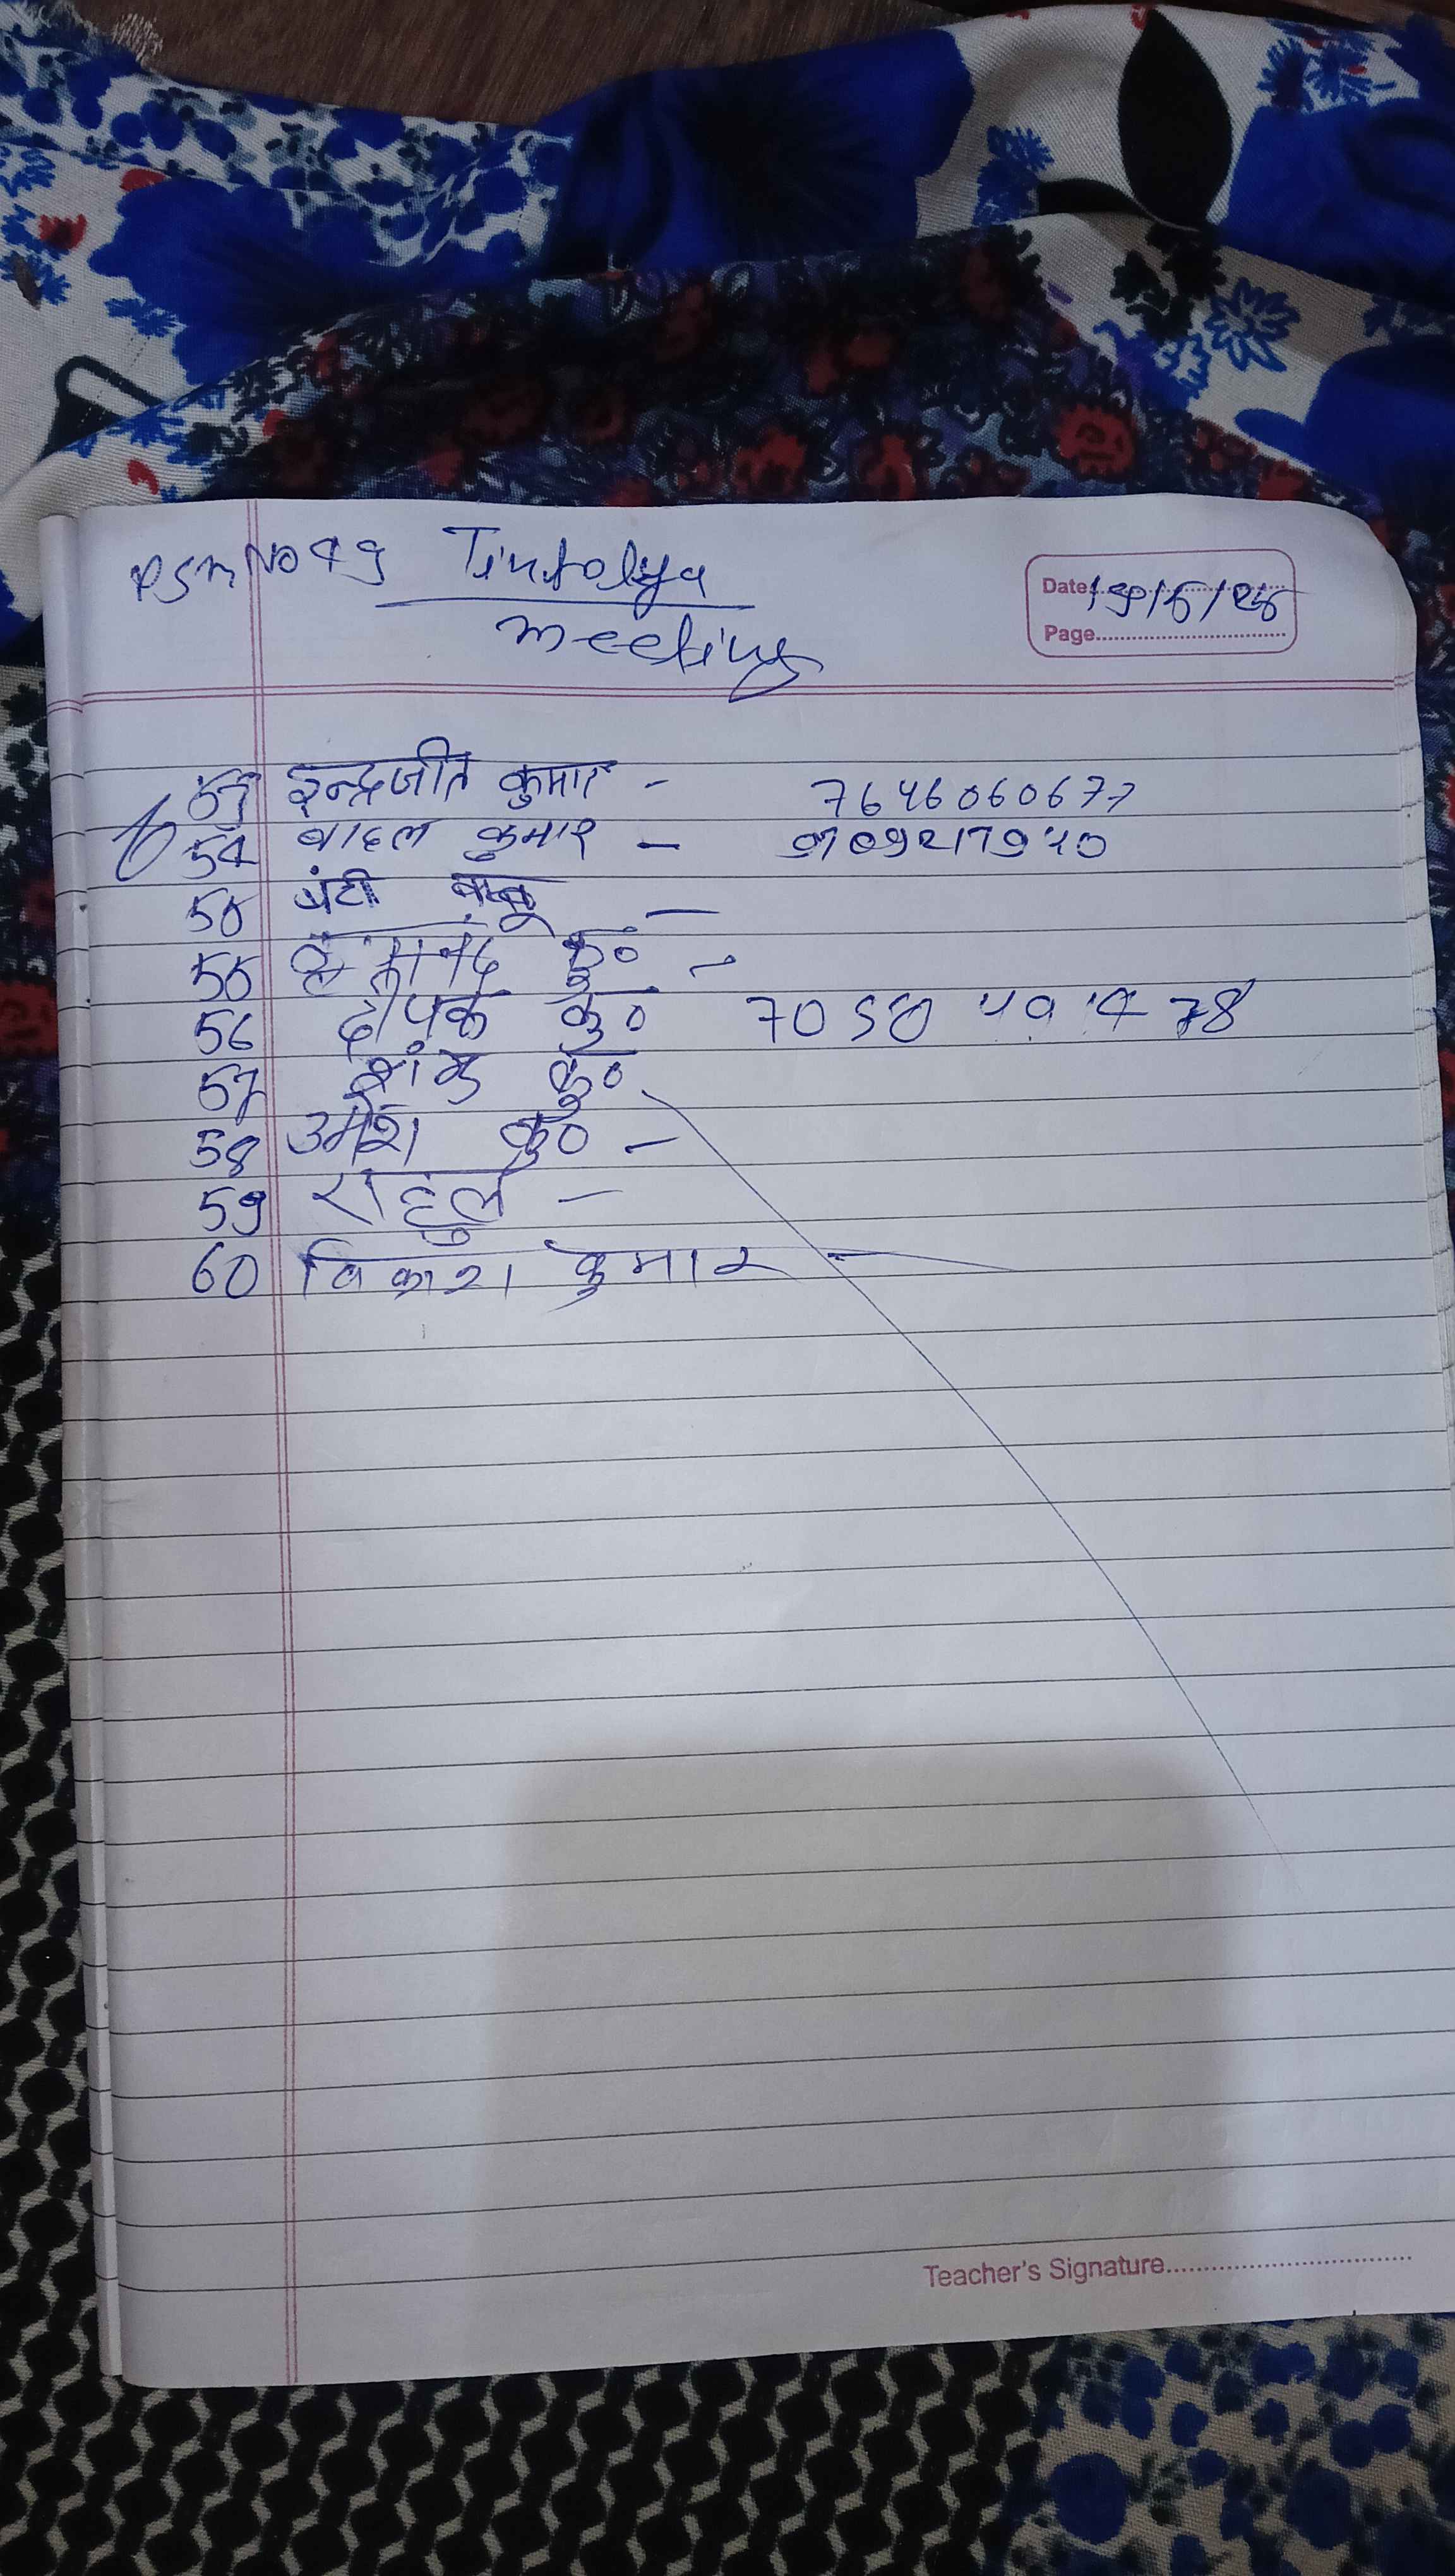 PSm No 49 Tintolya
meeting
Date 19/5/25
Page
53 इन्द्रजीत कुमार - 7646060677
54 बादल कुमार -
55 बंटी बाबू -
55 कु० -
56 दीपक कु० 7050
57 कु०
58 उमेश कु० -
59 राहुल -
60 विकाश कुमार -
Teacher's Signature